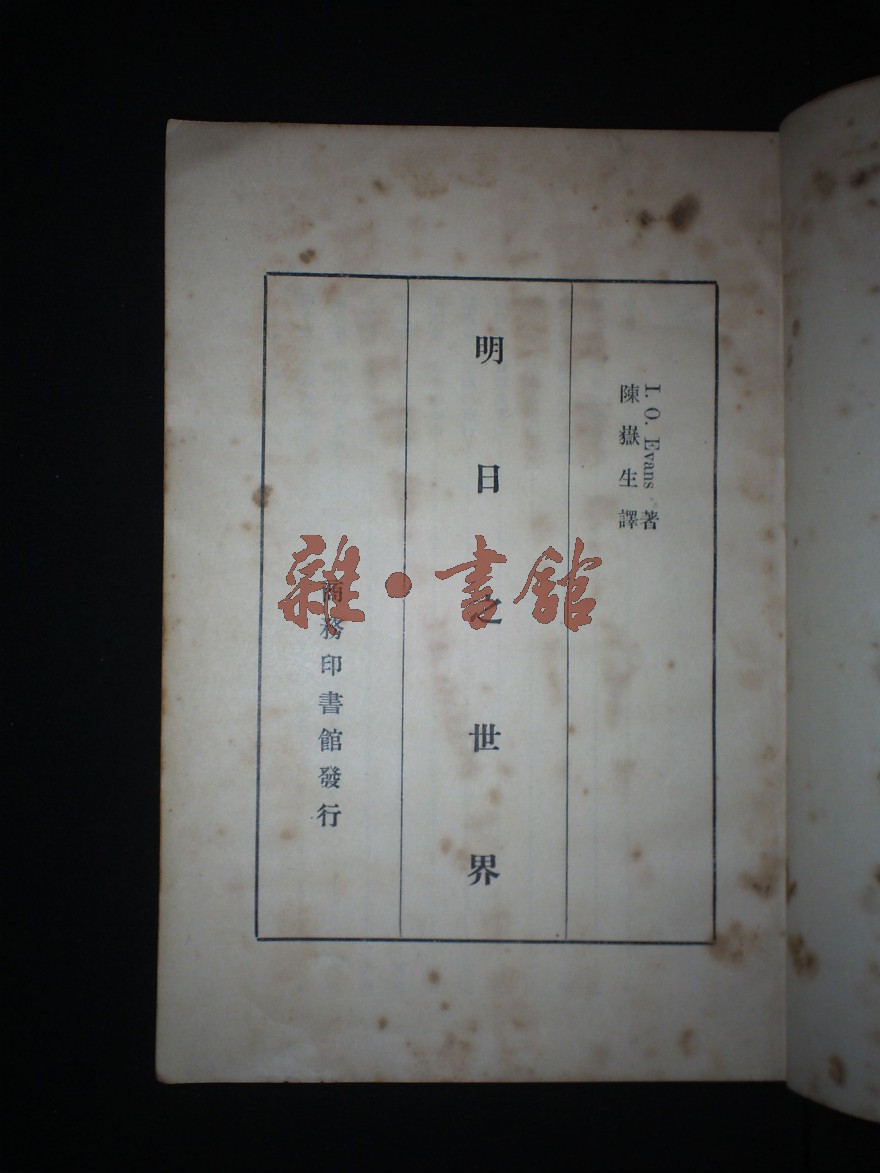 I. O. Evans 著
陳嶽生譯
明日之世界
商務印書館發行
雜·書館